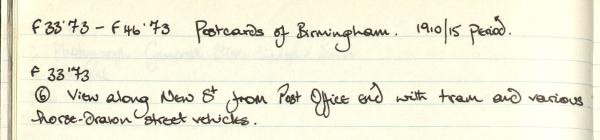 F33'73 - F46'73 Postcards of Birmingham. 1910/15 Period.
F 33'73
⑥ View along New St from Post Office end with tram and various
horse-drawn street vehicles.